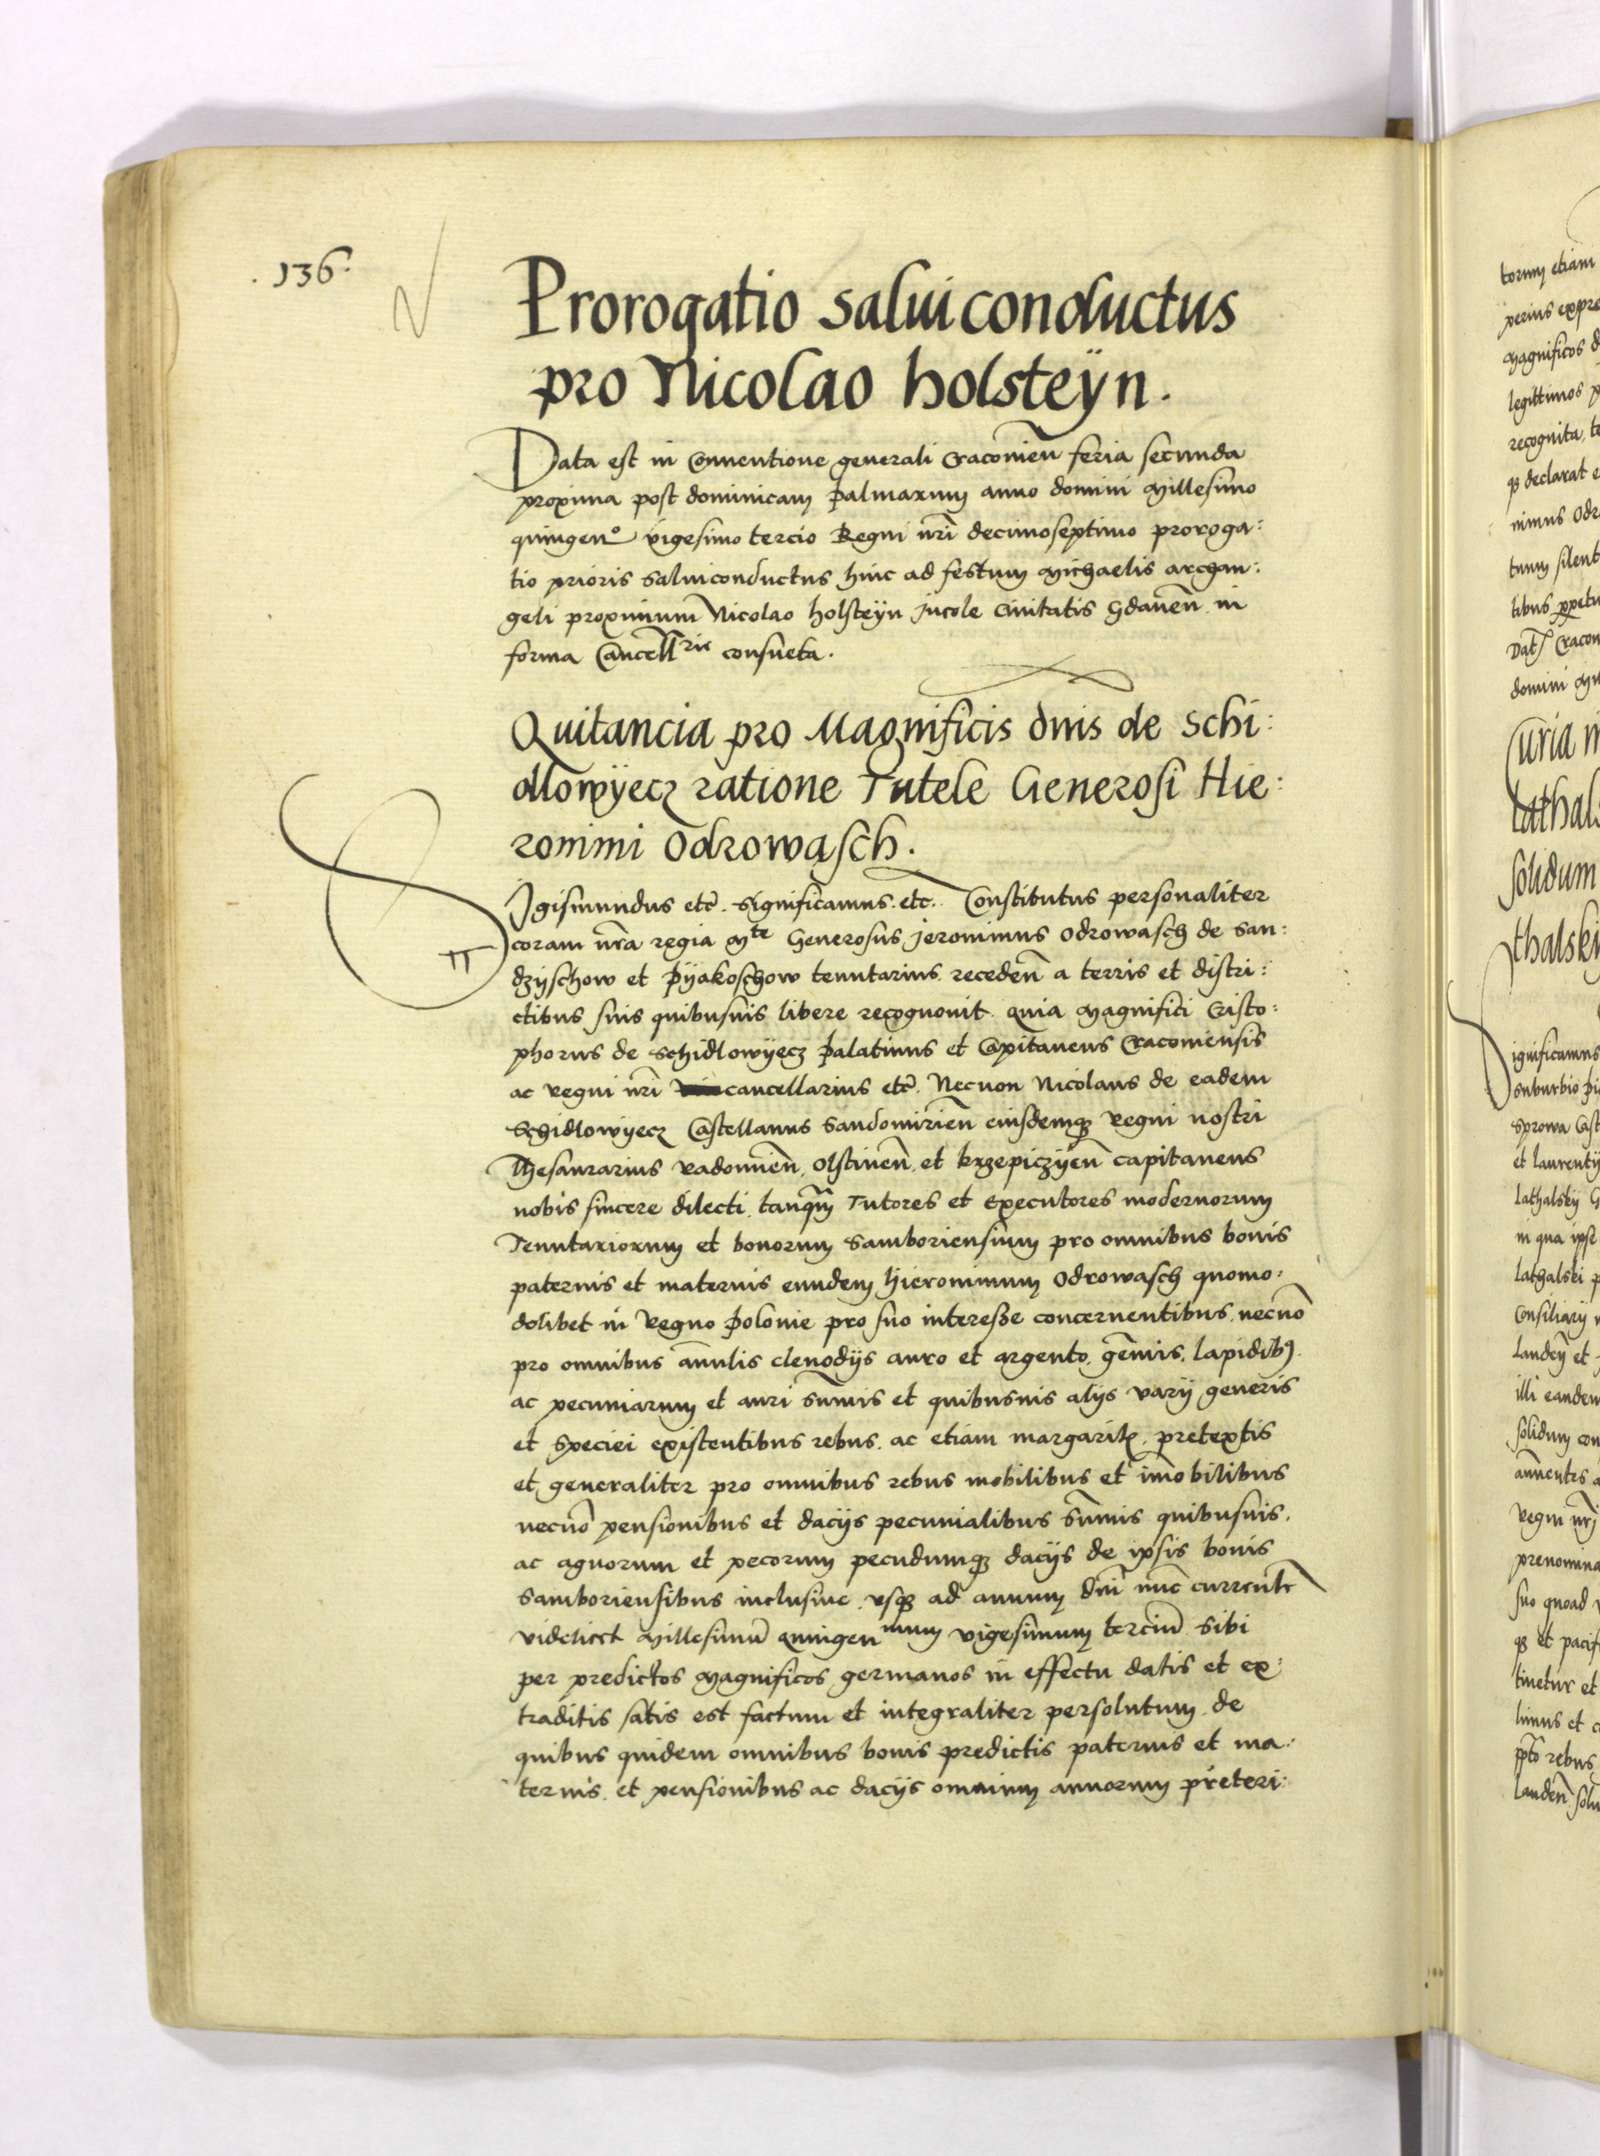 . 136 .
Prorogatio salui conductus
pro Nicolao holsteÿn .
Data est in Conuentione generali Cracouien̄ feria secunda
proxima post dominicam palmarum anno domini Millesimo
quingen° vigesimo tercio Regni nr̄i decimoseptimo proroga:
tio prioris saluiconductus hinc ad festum Michaelis archan:
geli proximum Nicolao holsteÿn Jncole Ciuitatis Gdanen̄ in
forma Cancellrie consueta .
Quitancia pro Magnificis dnis de Schi:
dlowÿecz ratione Tutele Generosi Hie:
ronimi Odrowąsch .
SJgismundus etc̄ . significamus . etc . Constitutus personaliter
coram nr̄a regia Mte Generosus Jeronimus Odrowasch de San:
dzÿschow et pÿakoschow tenutarius receden̄ a terris et distri:
ctibus suis quibusuis libere recognouit quia Magnifici Cristo:
phorus de Schidlowÿecz palatinus et Capitaneus Cracouiensis
ac Regni nr̄i cancellarius etc̄ . Necnon Nicolaus de eadem
Schidlowÿecz Castellanus Sandomirien̄ eiusdemqz Regni nostri
Thesaurarius Radomien̄ . Olstinen̄ . et krzepiczÿen̄ capitaneus
nobis sincere dilecti . tanqm̄ Tutores et Executores modernorum
Tenutariorum et bonorum Samboriensium pro omnibus bonis
paternis et maternis eundem Hieronimum Odrowasch quomo:
dolibet in Regno polonie pro suo interesse concernentibus . necno͞
pro omnibus an̄ulis clenodÿs auro et argento . gem̄is . lapidib9 .
ac pecuniarum et auri sum̄is et quibusuis alÿs varÿ generis
et speciei existentibus rebus . ac etiam margarit . pretextis
et generaliter pro omnibus rebus mobilibus et im̄obilibus
necno͞ pensionibus et dacÿs pecunialibus sum̄is quibusuis .
ac agnorum et pecorum pecudumqz dacÿs de ipsis bonis
Samboriensibus inclusiue vsqz ad annum dn̄i nuc̄ current
videlicet Millesimū quingenmum vigesimum terciū sibi
per predictos Magnificos germanos in effectu datis et ex:
traditis satis est factum et integraliter persolutum . de
quibus quidem omnibus bonis predictis paternis et ma:
ternis . et pensionibus ac dacÿs omnium annorum preteri: